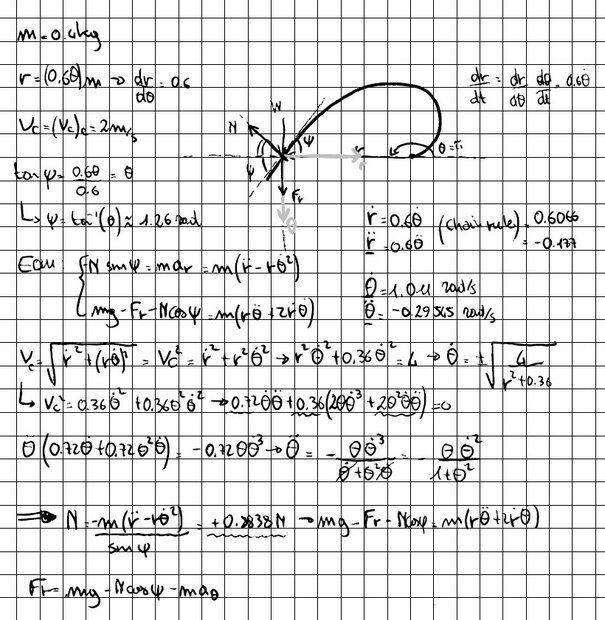 m = 0.4kg
r = (0.6θ) m → dr/dθ = 0.6
dr/dt = dr/dθ dθ/dt = 0.6θ̇
Vc = (Vc)c = 2m/s
N W ψ r θ = π
tan ψ = 0.6θ/0.6 = θ
ψ Fr θ
↳ ψ = tan⁻¹(θ) ≈ 1.26 rad
ṙ = 0.6θ̇ (Chain rule) = 0.6066
r̈ = 0.6θ̈ = -0.177
Eqm: { N sin ψ = mar = m(r̈ - rθ̇²)
mg - Fr - N cos ψ = m(rθ̈ + 2ṙθ̇)
θ̇ = 1.011 rad/s
θ̈ = -0.29565 rad/s
Vc = √(ṙ² + (rθ̇)²) = Vc² = ṙ² + r²θ̇² → r²θ̇² + 0.36θ̇² = 4 → θ̇ = ±√(4/(r² + 0.36))
↳ Vc² = 0.36θ̇² + 0.36θ²θ̇² → 0.72θ̇θ̈ + 0.36(2θθ̇³ + 2θ²θ̇θ̈) = 0
θ̈(0.72θ̇ + 0.72θ²θ̇) = -0.72θθ̇³ → θ̈ = - θθ̇³/(θ̇ + θ²θ̇) = - θθ̇²/(1 + θ²)
⇒ N = -m(r̈ - rθ̇²)/sin ψ = +0.2838N → mg - Fr - N cos ψ = m(rθ̈ + 2ṙθ̇)
Fr = mg - N cos ψ - maθ